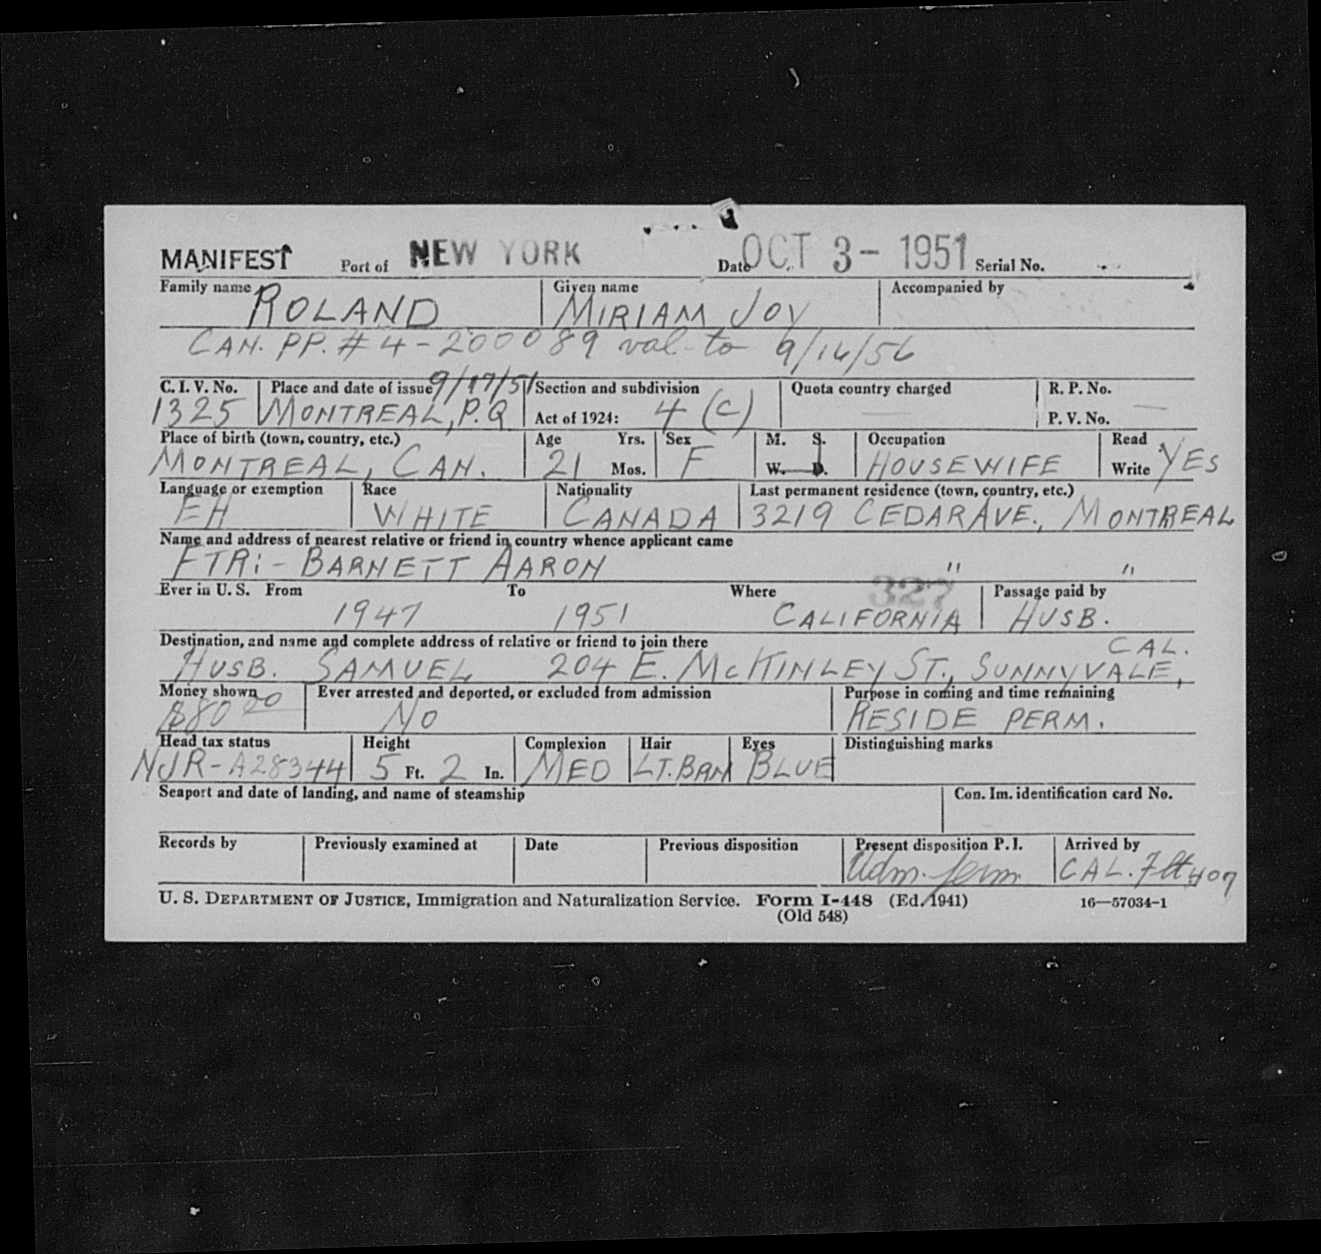 MANIFEST Port of NEW YORK Date OCT 3 - 1951 Serial No.
Family name ROLAND Given name MIRIAM JOY Accompanied by
CAN. PP. # 4-200089 val. to 9/16/56
C. I. V. No. Place and date of issue 9/17/51 Section and subdivision Quota country charged R. P. No.
1325 MONTREAL, P.Q Act of 1924: 4 (C) P. V. No.
Place of birth (town, country, etc.) Age Yrs. Sex M. S. Occupation Read
MONTREAL, CAN. 21 Mos. F W. D. HOUSEWIFE Write YES
Language or exemption Race Nationality Last permanent residence (town, country, etc.)
EH WHITE CANADA 3219 CEDAR AVE., MONTREAL
Name and address of nearest relative or friend in country whence applicant came
FTR: - BARNETT AARON " "
Ever in U. S. From To Where 327 Passage paid by
1947 1951 CALIFORNIA HUSB.
Destination, and name and complete address of relative or friend to join there CAL.
HUSB. SAMUEL 204 E. McKINLEY ST., SUNNYVALE,
Money shown Ever arrested and deported, or excluded from admission Purpose in coming and time remaining
$80 00 NO RESIDE PERM.
Head tax status Height Complexion Hair Eyes Distinguishing marks
NJR-A28344 5 Ft. 2 In. MED LT. BRN BLUE
Seaport and date of landing, and name of steamship Con. Im. identification card No.
Records by Previously examined at Date Previous disposition Present disposition P. I. Arrived by
Adm. perm CAL. Flt 409
U. S. DEPARTMENT OF JUSTICE, Immigration and Naturalization Service. Form I-448 (Ed. 1941) 16—57034-1
(Old 548)